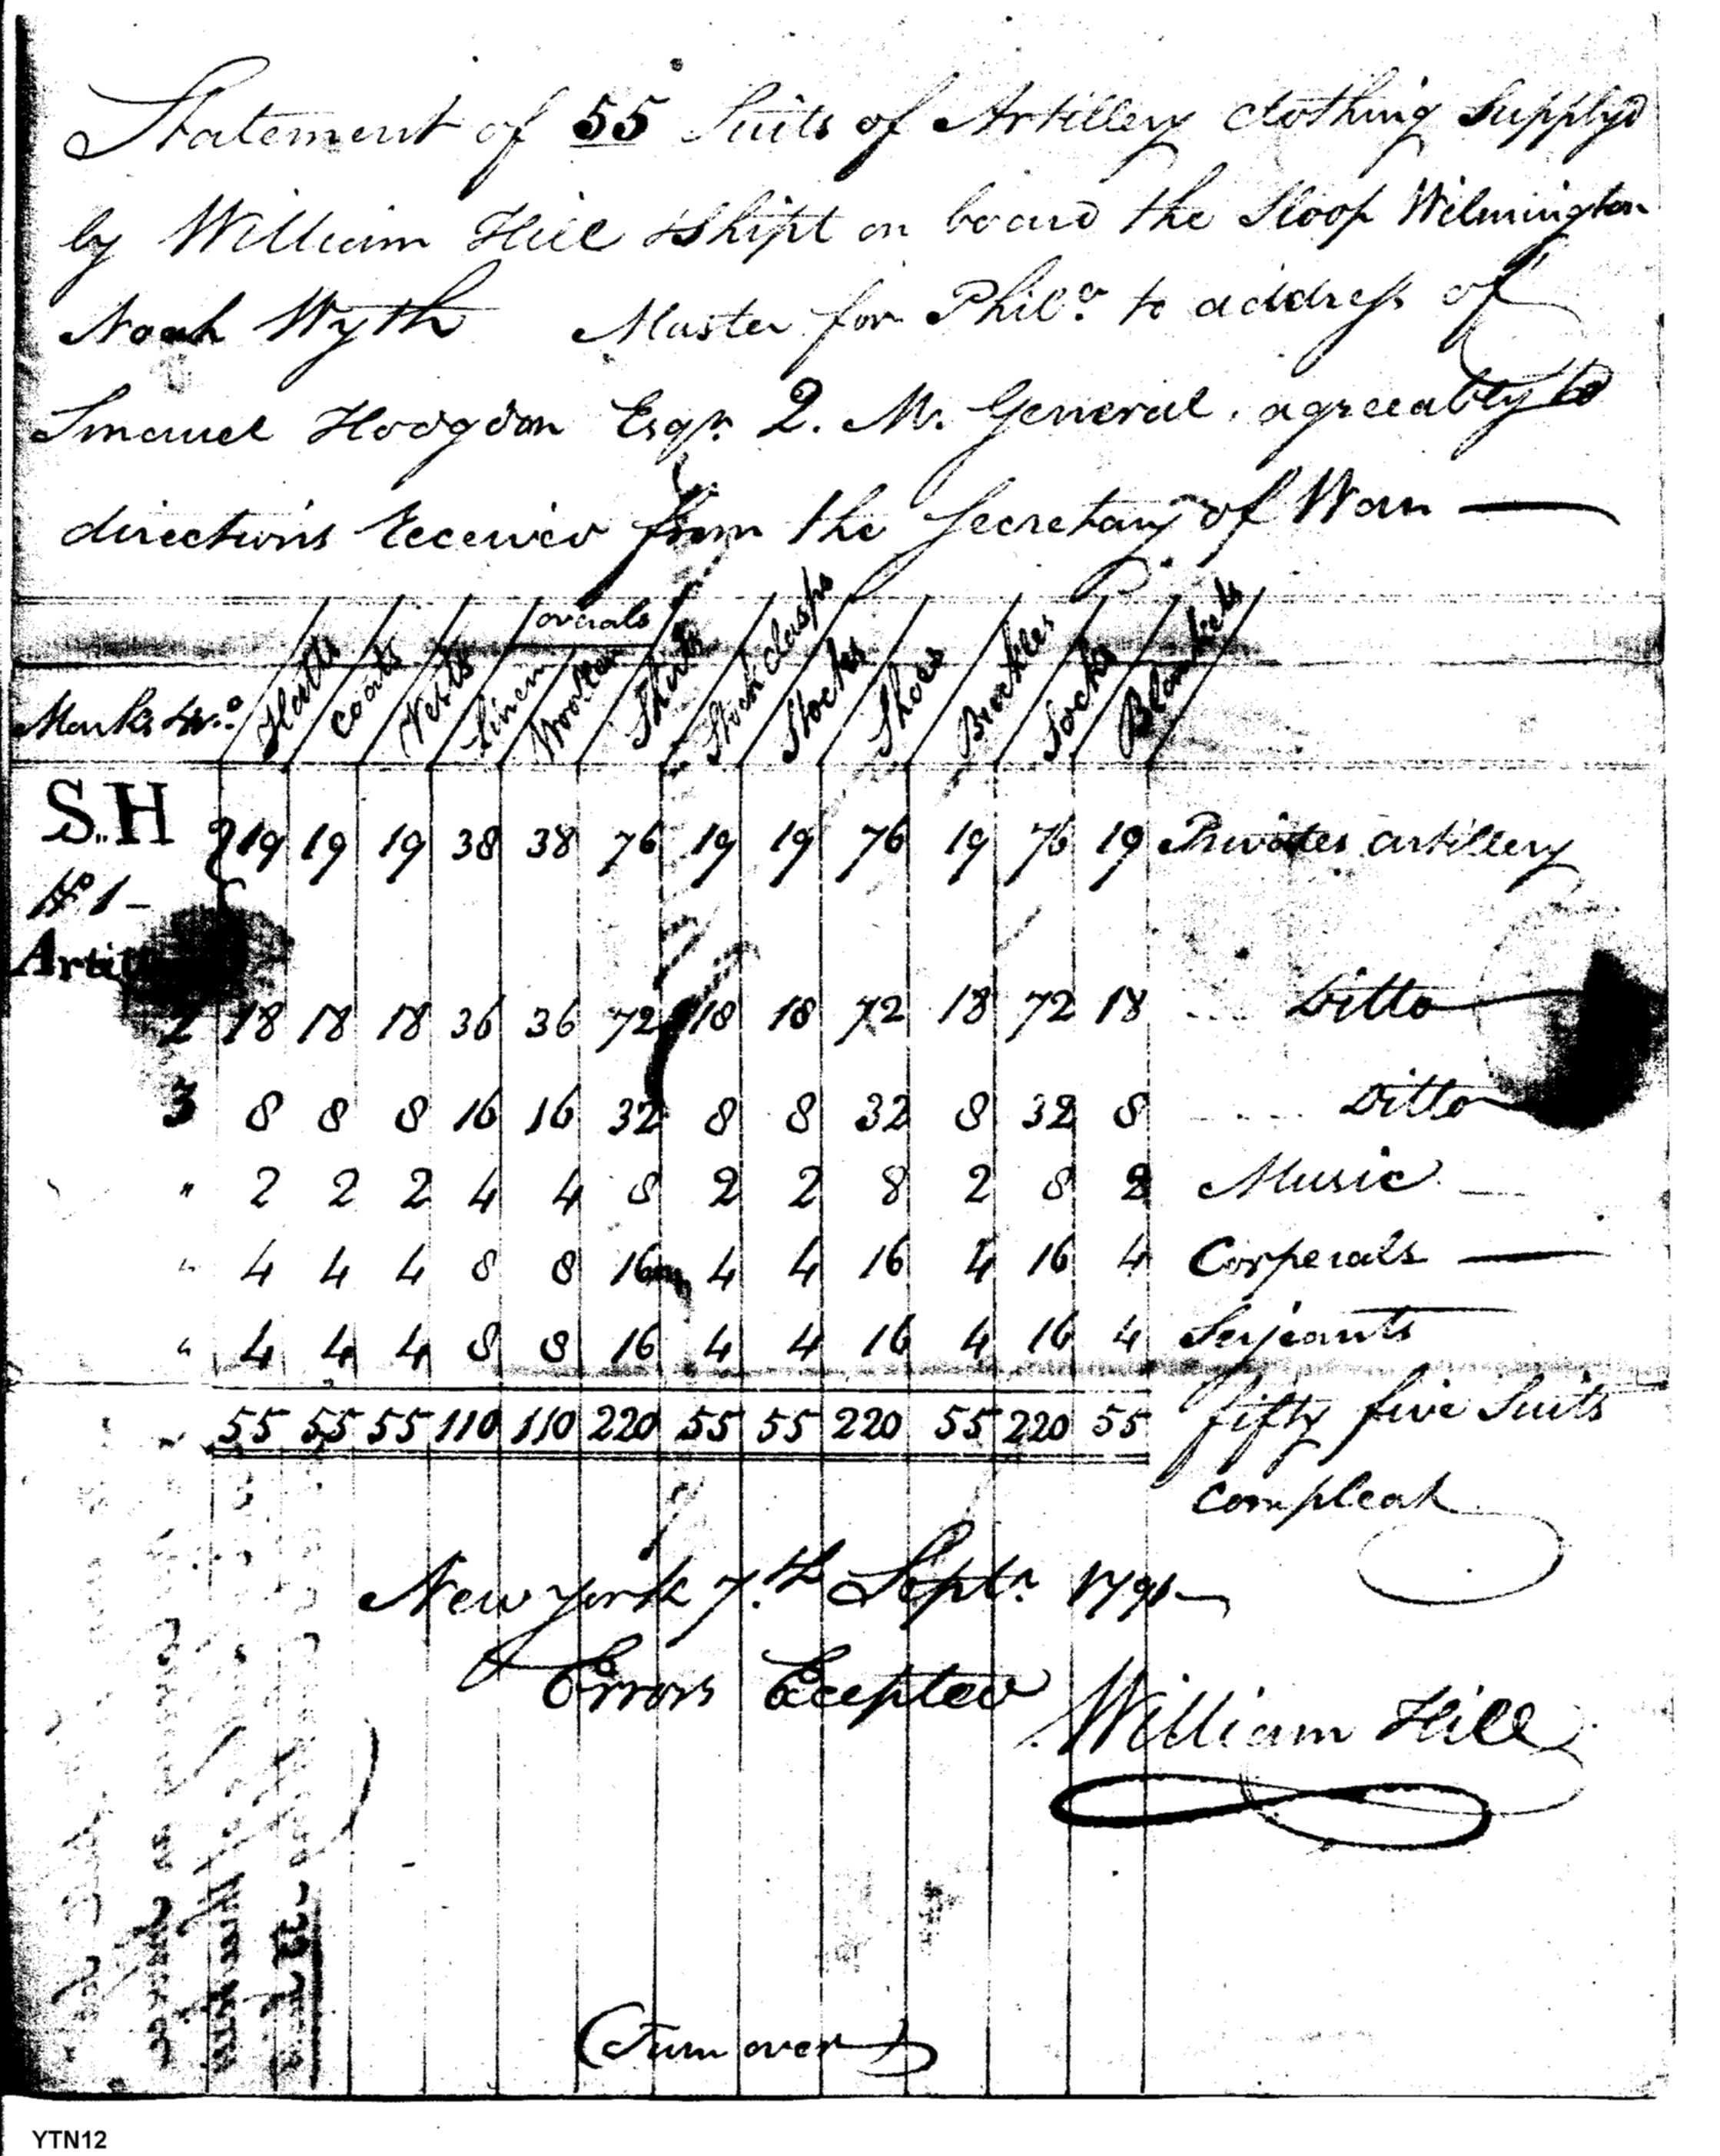 Statement of 55 Suits of Artillery Clothing Supplyd
by William Hill & Shipt on board the Sloop Wilmington
Noah Wyth Master for Phila. to address of
Smauel Hodgdon Esqr. Q. M. General, agreeably to
directions received from the Secretary of War
overals
Marks & No. Hatts Coats Vests Linen Woolen Shirts Stock clasps Stocks Shoes Buckles Socks Blankets
S.H
No 1 - 19 19 19 38 38 76 19 19 76 19 76 19 Privates artillery
Artill
2 18 18 18 36 36 72 18 18 72 18 72 18 Ditto
3 8 8 8 16 16 32 8 8 32 8 32 8 Ditto
" 2 2 2 4 4 8 2 2 8 2 8 2 Music
" 4 4 4 8 8 16 4 4 16 4 16 4 Corperals
" 4 4 4 8 8 16 4 4 16 4 16 4 Serjeants
55 55 55 110 110 220 55 55 220 55 220 55 fifty five Suits
compleat
New york 7th Septr. 1791
Errors Excepted
William Hill
(Turn over)
YTN12